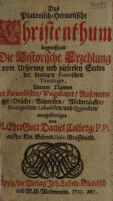 Das
Platonisch-Hermetische
Christenthum
begreiffend
Die Historische Erzehlung
vom Ursprung und vielerley Secten
der heutigen Fanatischen
Theologie,
Unterm Namen
der Paracelsisten / Weigelianer / Rosencreu-
tzer / Quäcker / Böhmisten / Wiedertäuffer /
Bourignisten / Labadisten und Quietisten /
M. Ehre Gott Daniel Colberg / P. P.
Leipzig / bey Johann Ludw. Gleditsch
und M. G. Weidmann 1710.